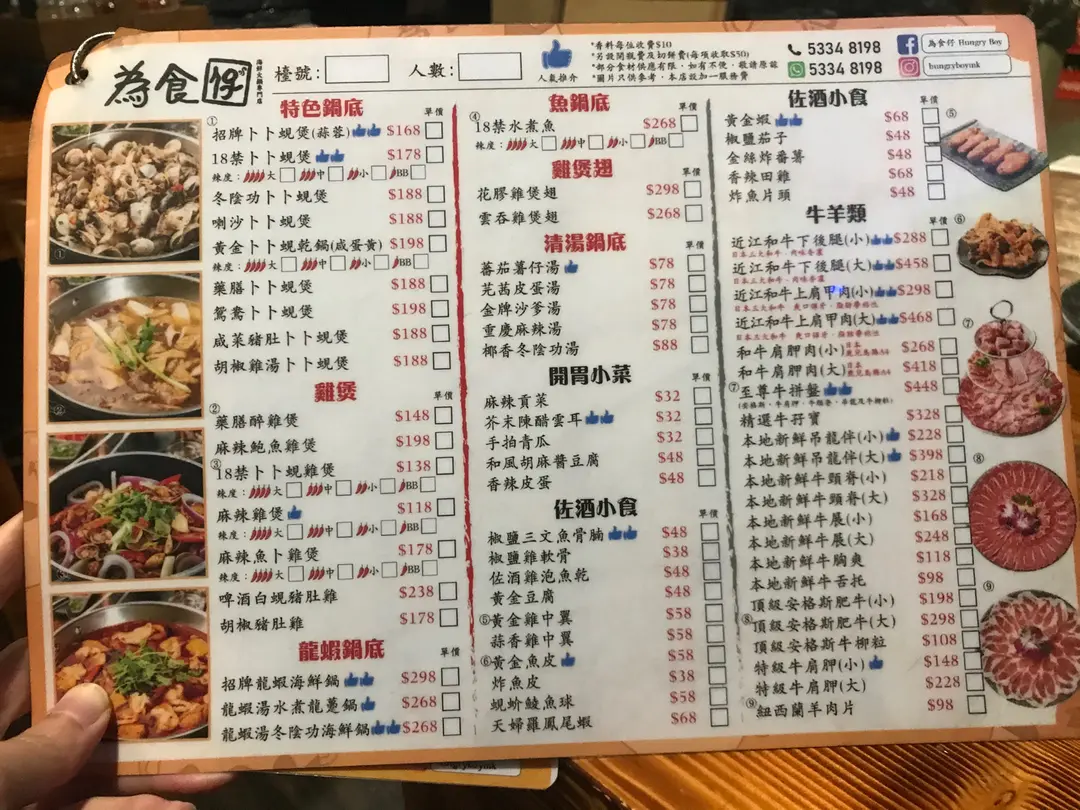 為食仔
海鮮火鍋專門店
檯號：
人數：
人氣推介
*香料每位收費$10
*另設開蠔費及切餅費(每項收取$50)
*部分食材供應有限，如有不便，敬請原諒
*圖片只供參考，本店設加一服務費
5334 8198
5334 8198
為食仔 Hungry Boy
hungryboymk
特色鍋底
單價
①
招牌卜卜蜆煲(蒜蓉) $168
18禁卜卜蜆煲 $178
辣度： 大 中 小 BB
冬陰功卜卜蜆煲 $188
喇沙卜卜蜆煲 $188
黃金卜卜蜆乾鍋(咸蛋黃) $198
辣度： 大 中 小 BB
藥膳卜卜蜆煲 $188
鴛鴦卜卜蜆煲 $198
咸菜豬肚卜卜蜆煲 $188
胡椒雞湯卜卜蜆煲 $188
雞煲
單價
②
藥膳醉雞煲 $148
麻辣鮑魚雞煲 $198
③
18禁卜卜蜆雞煲 $138
辣度： 大 中 小 BB
麻辣雞煲 $118
辣度： 大 中 小 BB
麻辣魚卜雞煲 $178
辣度： 大 中 小 BB
啤酒白蜆豬肚雞 $238
胡椒豬肚雞 $178
龍蝦鍋底
單價
招牌龍蝦海鮮鍋 $298
龍蝦湯水煮龍躉鍋 $268
龍蝦湯冬陰功海鮮鍋 $268
魚鍋底
單價
④
18禁水煮魚 $268
辣度： 大 中 小 BB
雞煲翅
單價
花膠雞煲翅 $298
雲吞雞煲翅 $268
清湯鍋底
單價
蕃茄薯仔湯 $78
芫茜皮蛋湯 $78
金牌沙爹湯 $78
重慶麻辣湯 $78
椰香冬陰功湯 $88
開胃小菜
單價
麻辣貢菜 $32
芥末陳醋雲耳 $32
手拍青瓜 $32
和風胡麻醬豆腐 $48
香辣皮蛋 $48
佐酒小食
單價
椒鹽三文魚骨腩 $48
椒鹽雞軟骨 $38
佐酒雞泡魚乾 $48
黃金豆腐 $48
⑤黃金雞中翼 $58
蒜香雞中翼 $58
⑥黃金魚皮 $58
炸魚皮 $38
蜆蚧鯪魚球 $58
天婦羅鳳尾蝦 $68
佐酒小食
單價
黃金蝦 $68
椒鹽茄子 $48
金絲炸番薯 $48
香辣田雞 $68
炸魚片頭 $48
牛羊類
單價
近江和牛下後腿(小) $288
日本三大和牛，肉味香濃
近江和牛下後腿(大) $458
日本三大和牛，肉味香濃
近江和牛上肩甲肉(小) $298
近江和牛上肩甲肉(大) $468
和牛肩胛肉(小) 日本鹿兒島縣A4 $268
和牛肩胛肉(大) 日本鹿兒島縣A4 $418
⑦至尊牛拼盤 $448
精選牛孖寶 $328
本地新鮮吊龍伴(小) $228
本地新鮮吊龍伴(大) $398
本地新鮮牛頸脊(小) $218
本地新鮮牛頸脊(大) $328
本地新鮮牛展(小) $168
本地新鮮牛展(大) $248
本地新鮮牛胸爽 $118
本地新鮮牛舌托 $98
頂級安格斯肥牛(小) $198
⑧頂級安格斯肥牛(大) $298
頂級安格斯牛柳粒 $108
特級牛肩胛(小) $148
特級牛肩胛(大) $228
⑨紐西蘭羊肉片 $98
①
②
⑤
⑥
⑦
⑧
⑨